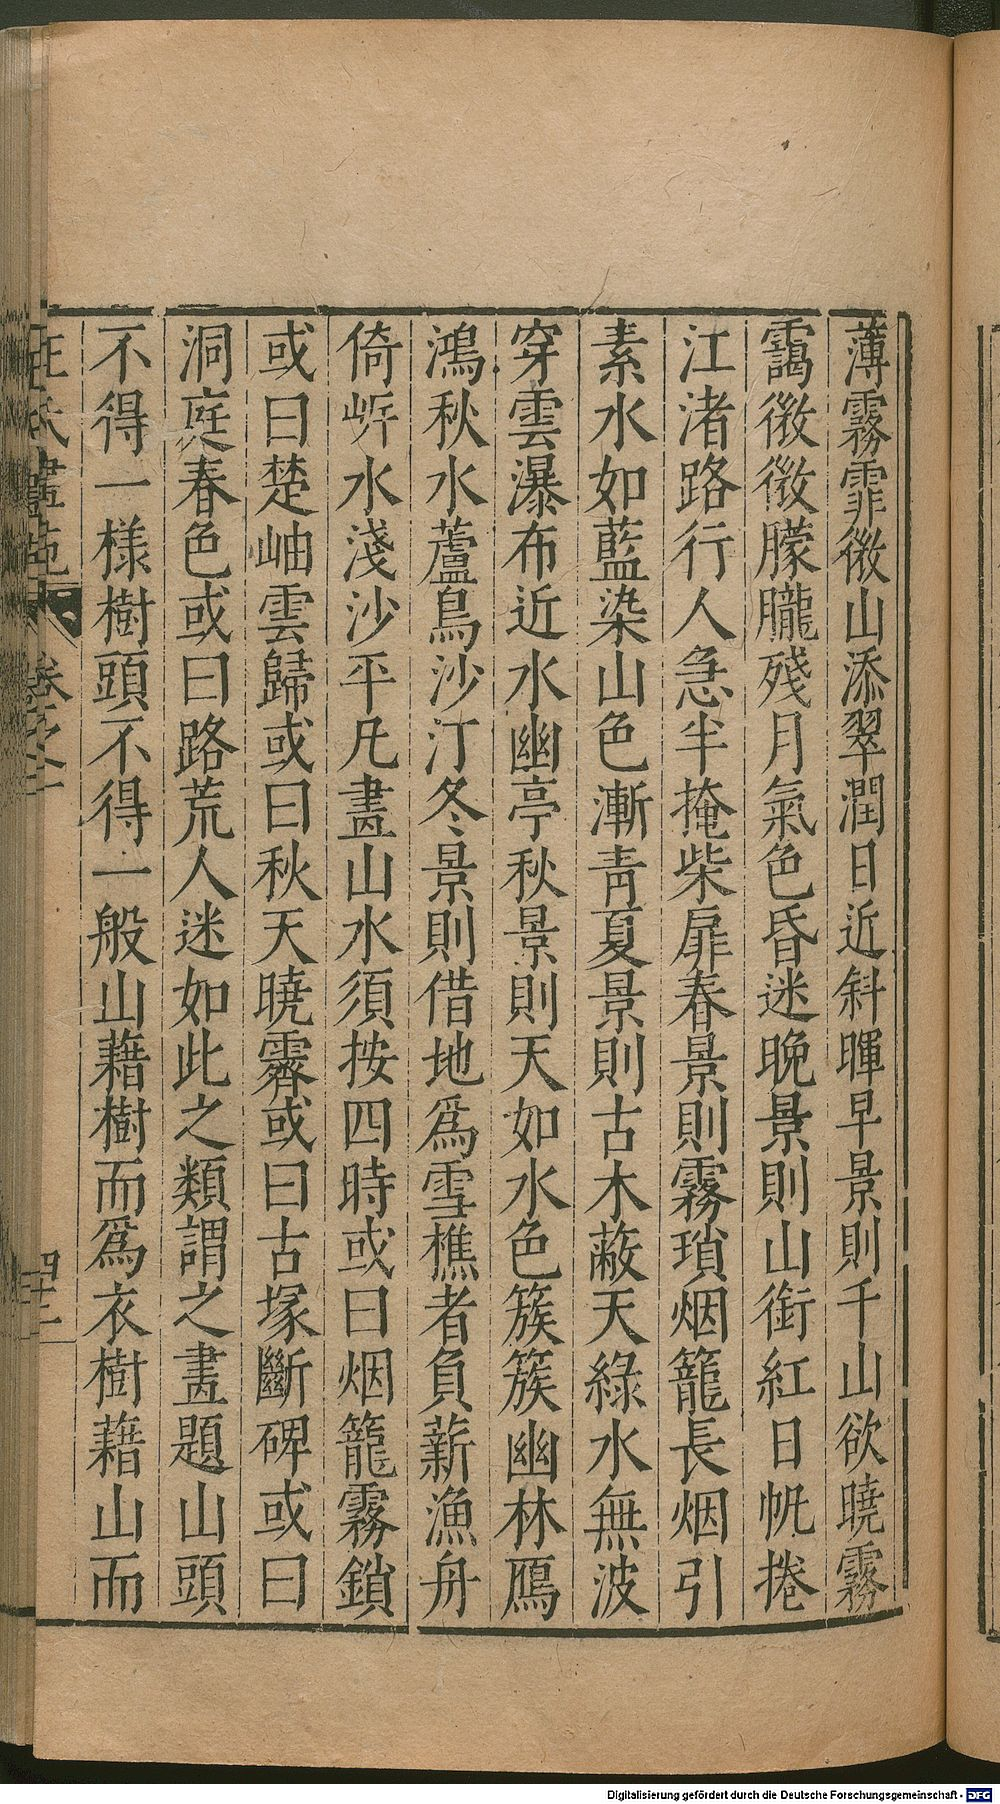 薄霧霏微山添翠潤日近斜暉早景則千山欲曉霧
靄微微朦朧殘月氣色昏迷晚景則山銜紅日帆捲
江渚路行人急半掩柴扉春景則霧瑣烟籠長烟引
素水如藍染山色漸靑夏景則古木蔽天綠水無波
穿雲瀑布近水幽亭秋景則天如水色簇簇幽林鴈
鴻秋水蘆鳥沙汀冬景則借地爲雪樵者負薪漁舟
倚岍水淺沙平凡畫山水須按四時或曰烟籠霧鎖
或曰楚岫雲歸或曰秋天曉霽或曰古塚斷碑或曰
洞庭春色或曰路荒人迷如此之類謂之畫題山頭
不得一樣樹頭不得一般山藉樹而爲衣樹藉山而
王氏畫苑 卷之二 四十二
Digitalisierung gefördert durch die Deutsche Forschungsgemeinschaft - DFG